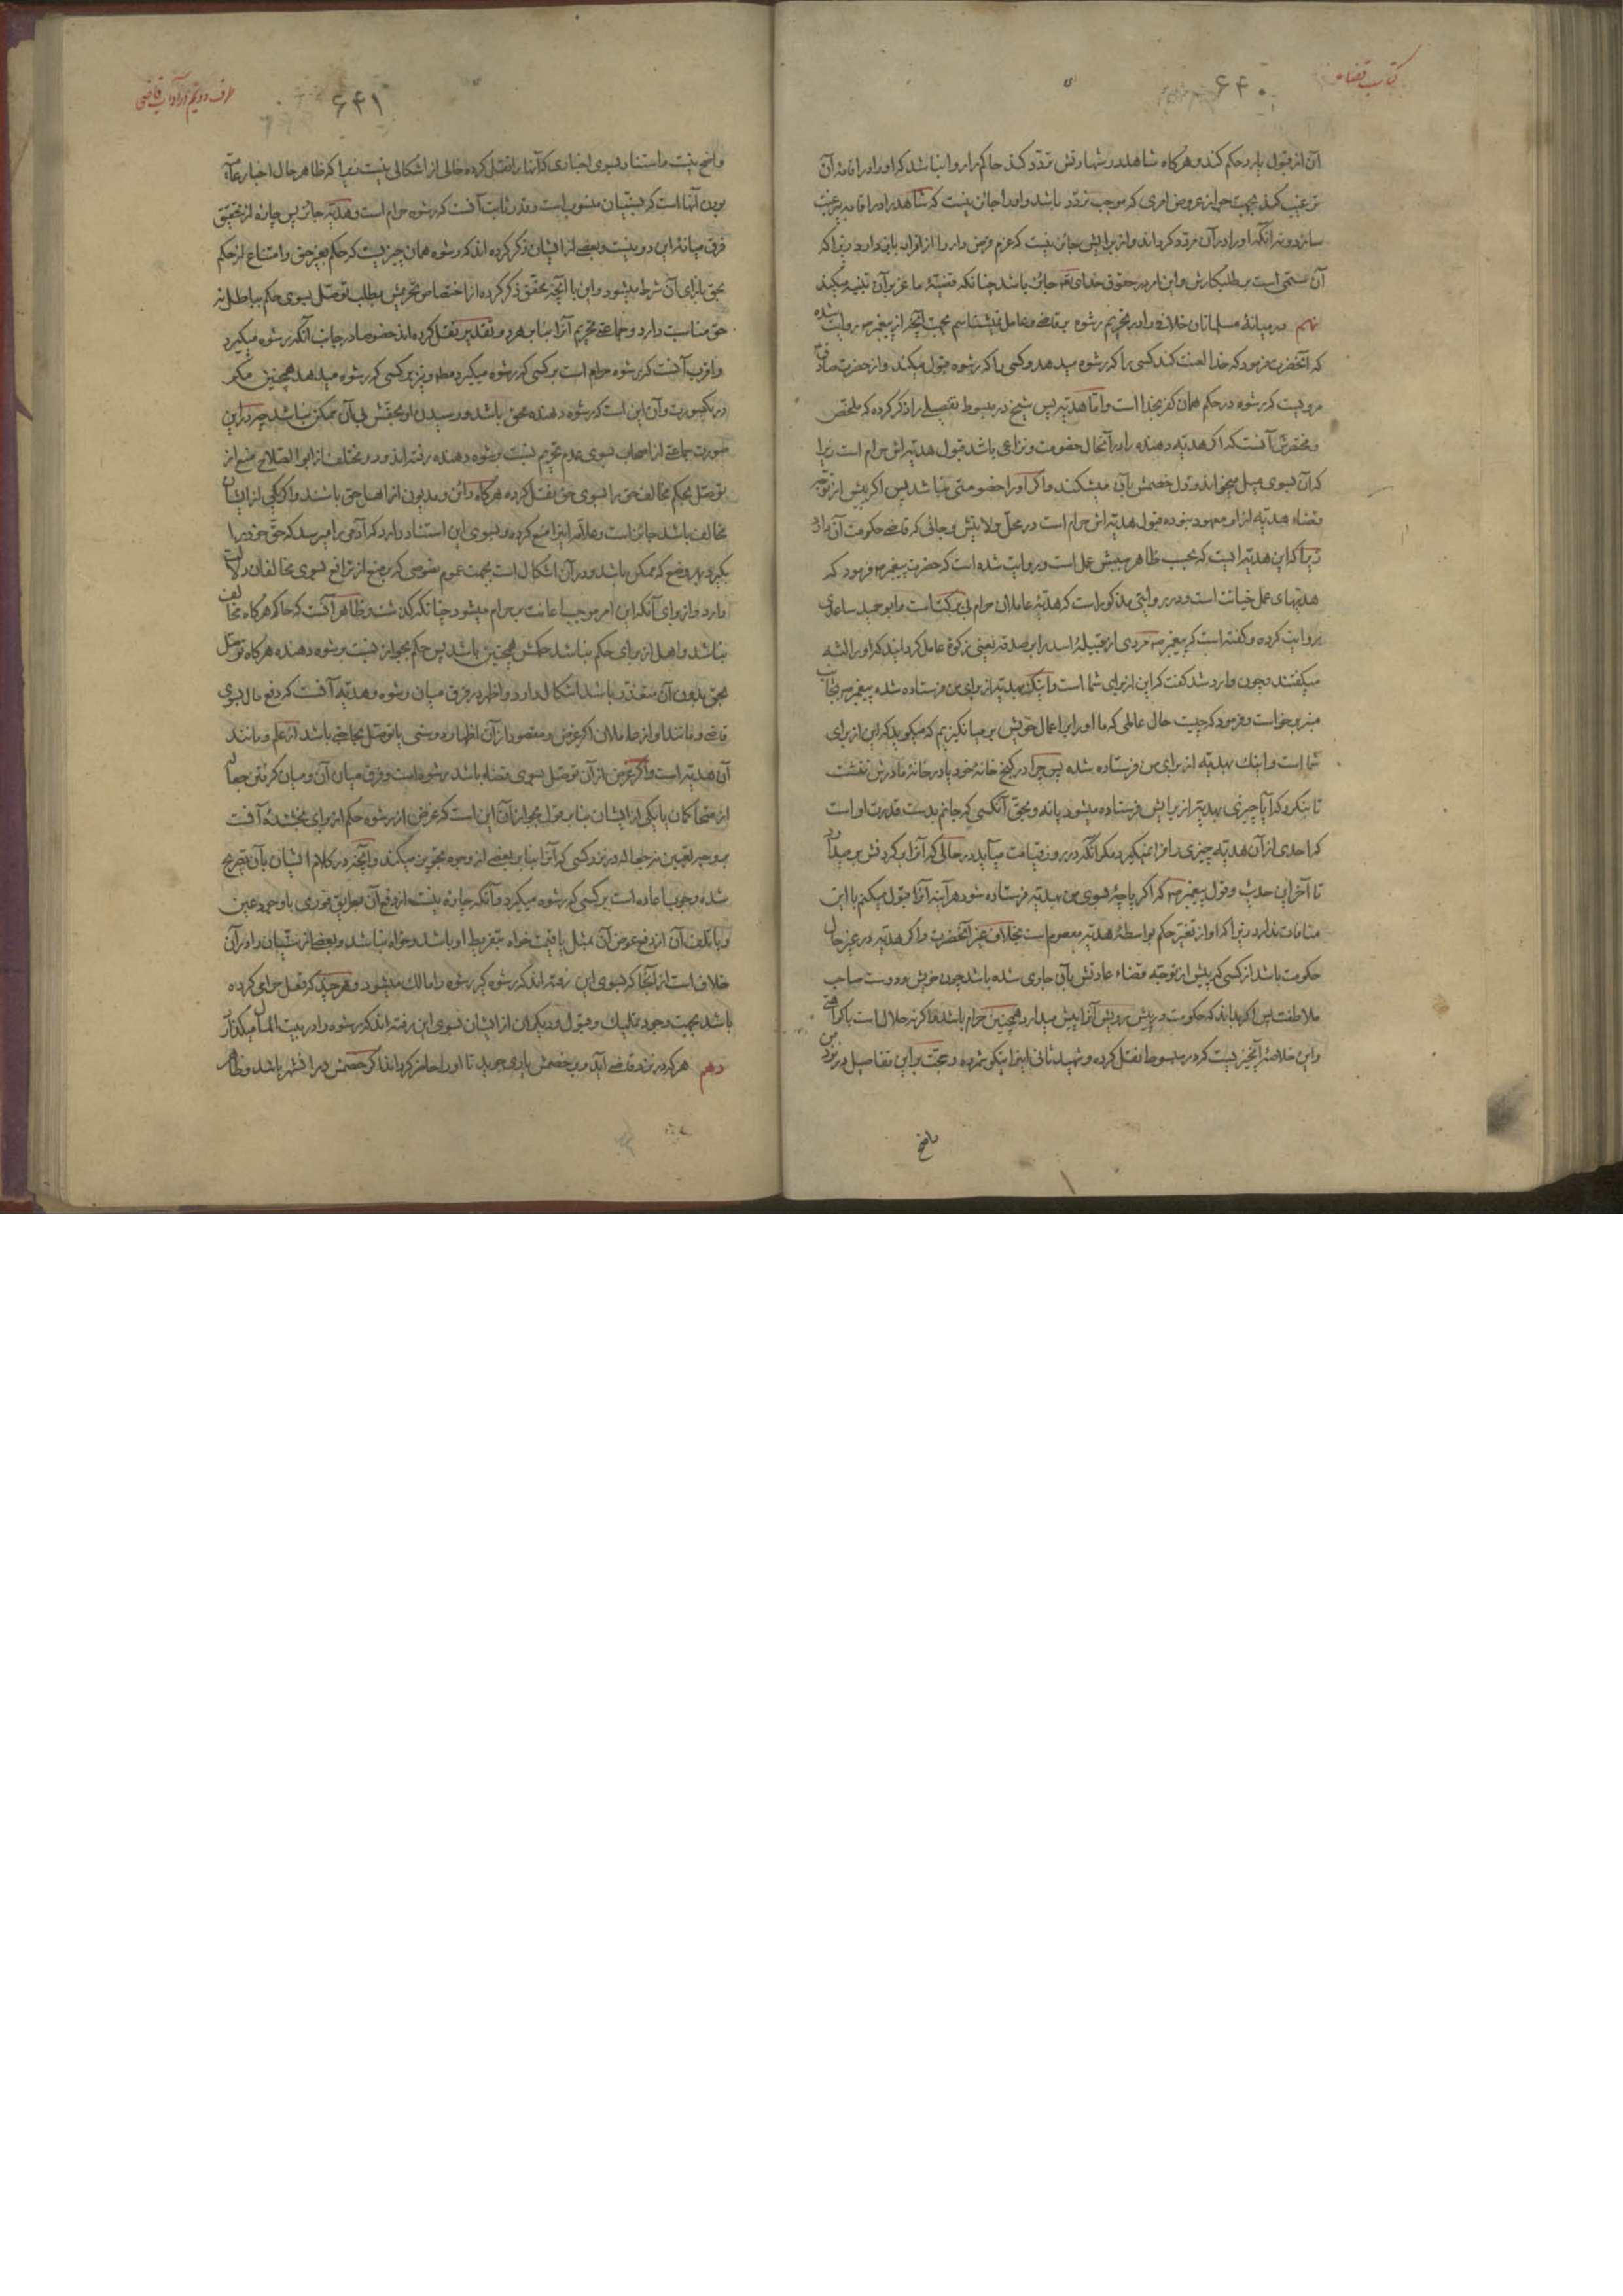 کتاب قضاء
۶۴۰
آن از قبول یا رد حکم کند و هرگاه شاهد در شهادتش تردّد کند حاکم را روا نباشد که او را در اقامهٔ آن
ترغیب کند بجهت جواز عروض امری که موجب تردّد باشد و او را جائز نیست که شاهد را در اقامه بی‌رغبت
سازد و نه آنکه او را در آن مردّد گرداند و از برایش جائز نیست که عزم قرض‌دار را از اقرار باز دارد زیرا که
آن ستمی است بر طلبکارش و این امر در حقوق خدای تعالی جائز باشد چنانکه قضیّهٔ ماعز بر آن تنبیه میکند
نهم در میانهٔ مسلمانان خلاف را در تحریم رشوه بر قاضی و عامل نمیشناسم بجهت آنچه از پیغمبر ص روایت شده
که آنحضرت فرمود که خدا لعنت کند کسی را که رشوه میدهد و کسی را که رشوه قبول میکند و از حضرت صادق
مرویست که رشوه در حکم همان کفر بخدا است و امّا هدیّه پس شیخ در مبسوط تفصیلی را ذکر کرده که ملخّص
و مختصرش آنست که اگر هدیّه دهنده را در آنحال خصومت و نزاعی باشد قبول هدیّه‌اش حرام است زیرا
که آن بسوی میل میخواند و دل خصمش بآن میشکند و اگر او را خصومتی نباشد پس اگر پیش از تولّی
قضاء هدیّه از او معهود نبوده قبول هدیّه‌اش حرام است در محلّ ولایتش و جائی که قاضی حکومت آن دارد
زیرا که این هدیّه ایست که بحسب ظاهر سببش عمل است و روایت شده است که حضرت پیغمبر ص فرمود که
هدیّهای عمل خیانت است و در روایتی مذکور است که هدیّهٔ عاملان حرام بی برکت است و ابو حمید ساعدی
روایت کرده و گفته است که پیغمبر ص مردی از قبیلهٔ اسد را بر صدقه یعنی زکوة عامل گردانید که او را
میگفتند و چون وارد شد گفت که این از برای شما است و اینک بهدیّه از برای من فرستاده شده پیغمبر ص بجانب
منبر برخواست و فرمود که چیست حال عاملی که ما او را بر اعمال خویش بر میانگیزیم که میگوید که این از برای
شما است و اینک بهدیّه از برای من فرستاده شده پس چرا در کنج خانهٔ خود یا در خانهٔ مادرش ننشست
تا بنگرد که آیا چیزی بهدیّه از برایش فرستاده میشود یا نه و بحقّ آنکسی که جانم بدست قدرت او است
که احدی از آن هدیّه چیزی را فرا نمیگیرد مگر آنکه در روز قیامت میآید در حالی که آنرا بر گردنش بر میدارد
تا آخر این حدیث و قول پیغمبر ص که اگر پاچهٔ بسوی من بهدیّه فرستاده شود هر آینه آنرا قبول میکنم با این
منافات ندارد زیرا که او از تغیّر حکم بواسطهٔ هدیّه معصوم است بخلاف غیر آنحضرت و اگر هدیّه در غیر حال
حکومت باشد از کسی که پیش از تولّیه قضاء عادتش بآن جاری شده باشد چون خویش و دوست صاحب
ملاطفت پس اگر بداند که حکومت در پیش رویش آنرا پیش میدارد همچنین حرام باشد و اگر نه حلال است با کراهت
و این خلاصهٔ آنچیزیست که در مبسوط نقل کرده و شهید ثانی اینرا نیکو شمرده و حجّت بر این تفاصیل در نزد من
واضح
طرف دویّم در آداب قاضی
۶۴۱
واضح نیست و استناد بسوی اخباری که آنها را نقل کرده خالی از اشکالی نیست زیرا که ظاهر حال اخبار عامّیّه
بودن آنها است که بسنّیان منسوب است و قدر ثابت آنست که رشوه حرام است و هدیّه جائز پس چاره از تحقیق
فرق میانهٔ این دو نیست و بعضی از ایشان ذکر کرده‌اند که رشوه همان چیزیست که حکم بغیر حق و امتناع از حکم
بحق بازای آن شرط میشود و این با آنچه محقّق ذکر کرده از اختصاص تحریمش بطلب توصّل بسوی حکم بباطل نه
حق مناسبت دارد و جماعتی تحریم آنرا بنا بر هر دو تقدیر نقل کرده‌اند خصوصا در جانب آنکه رشوه میگیرد
و اقرب آنست که رشوه حرام است بر کسی که رشوه میگیرد مطلقا و نیز بر کسی که رشوه میدهد همچنین مگر
در یکصورت و آن این است که رشوه دهنده محق باشد و رسیدن او بحقّش بی آن ممکن نباشد چه در این
صورت جماعتی از اصحاب بسوی عدم تحریم نسبت برشوه دهنده رفته‌اند و در مختلف از ابو الصلاح منع از
توصّل بحکم مخالف حق را بسوی حق نقل کرده هرگاه دائن و مدیون از اهل حق باشند و اگر یکی از ایشان
مخالف باشد جائز است و علاّمه اینرا منع کرده و بسوی این استناد دارد که آدمی را میرسد که حقّ خود را
بگیرد بهر وضع که ممکن باشد و در آن اشکال است بجهت عموم نصوصی که بر منع از ترافع بسوی مخالفان دلالت
دارد و از برای آنکه این امر موجب اعانت بر حرام میشود چنانکه گذشت و ظاهر آنست که حاکم هرگاه مخالف
نباشد و اهل از برای حکم نباشد حکمش همچنین باشد پس حکم بجواز نسبت برشوه دهنده هرگاه توصّل
بحق بدون آن متعذّر باشد اشکال دارد و اظهر در فرق میان رشوه و هدیّه آنست که دفع مال بسوی
قاضی و مانند او از عاملان اگر غرض و مقصود از آن اظهار دوستی یا توصّل بحاجتی باشد از علم و مانند
آن هدیّه است و اگر غرض از آن توصّل بسوی قضاء باشد رشوه است و فرق میان آن و میان گرفتن جعال
از متحاکمان یا یکی از ایشان بنا بر قول بجواز آن این است که غرض از رشوه حکم از برای بخشندهٔ آنست
بر وجه تعیین نه جعاله در نزد کسی که آنرا بنا بر بعضی از وجوه تجویز میکند و آنچه در کلام ایشان بآن تصریح
شده وجوب اعاده است بر کسی که رشوه میگیرد و آنکه چارهٔ نیست از دفع آن بطریق فوری با وجود عین
و با تلف آن از دفع عوض آن بمثل یا قیمت خواه بتفریط او باشد و خواه نباشد و بعضی از سنّیان را در آن
خلاف است از آنجا که بسوی این رفته‌اند که رشوه گیر رشوه را مالک میشود و هر چند که فعل حرامی کرده
باشد بجهت وجود تملیک و قبول و دیگران از ایشان بسوی این رفته‌اند که رشوه را در بیت المال میگذارد
دهم هر که در نزد قاضی آید و بر خصمش یاری جوید تا او را حاضر گرداند اگر خصمش در آن شهر باشد و ظاهر